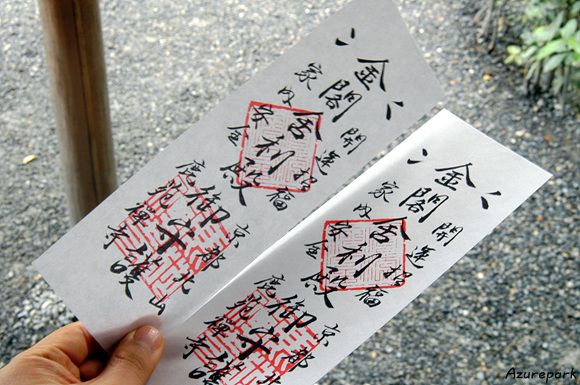 開運招福
京都北山
金閣舍利殿
御守護
家内安全
鹿苑禪寺
開運招福
京都北
金閣舍利殿
御守
家内安全
鹿苑禪寺
Azurepark